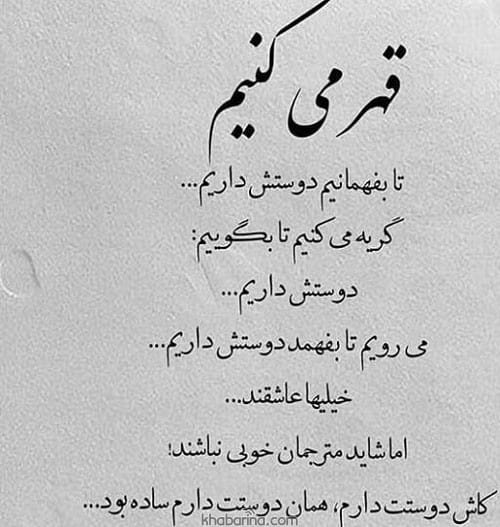 قهر می کنیم
تا بفهمانیم دوستش داریم...
گریه می کنیم تا بگوییم:
دوستش داریم...
می رویم تا بفهمد دوستش داریم...
خیلیها عاشقند...
اما شاید مترجمان خوبی نباشند!
کاش دوستت دارم، همان دوستت دارم ساده بود...
khabarina.com